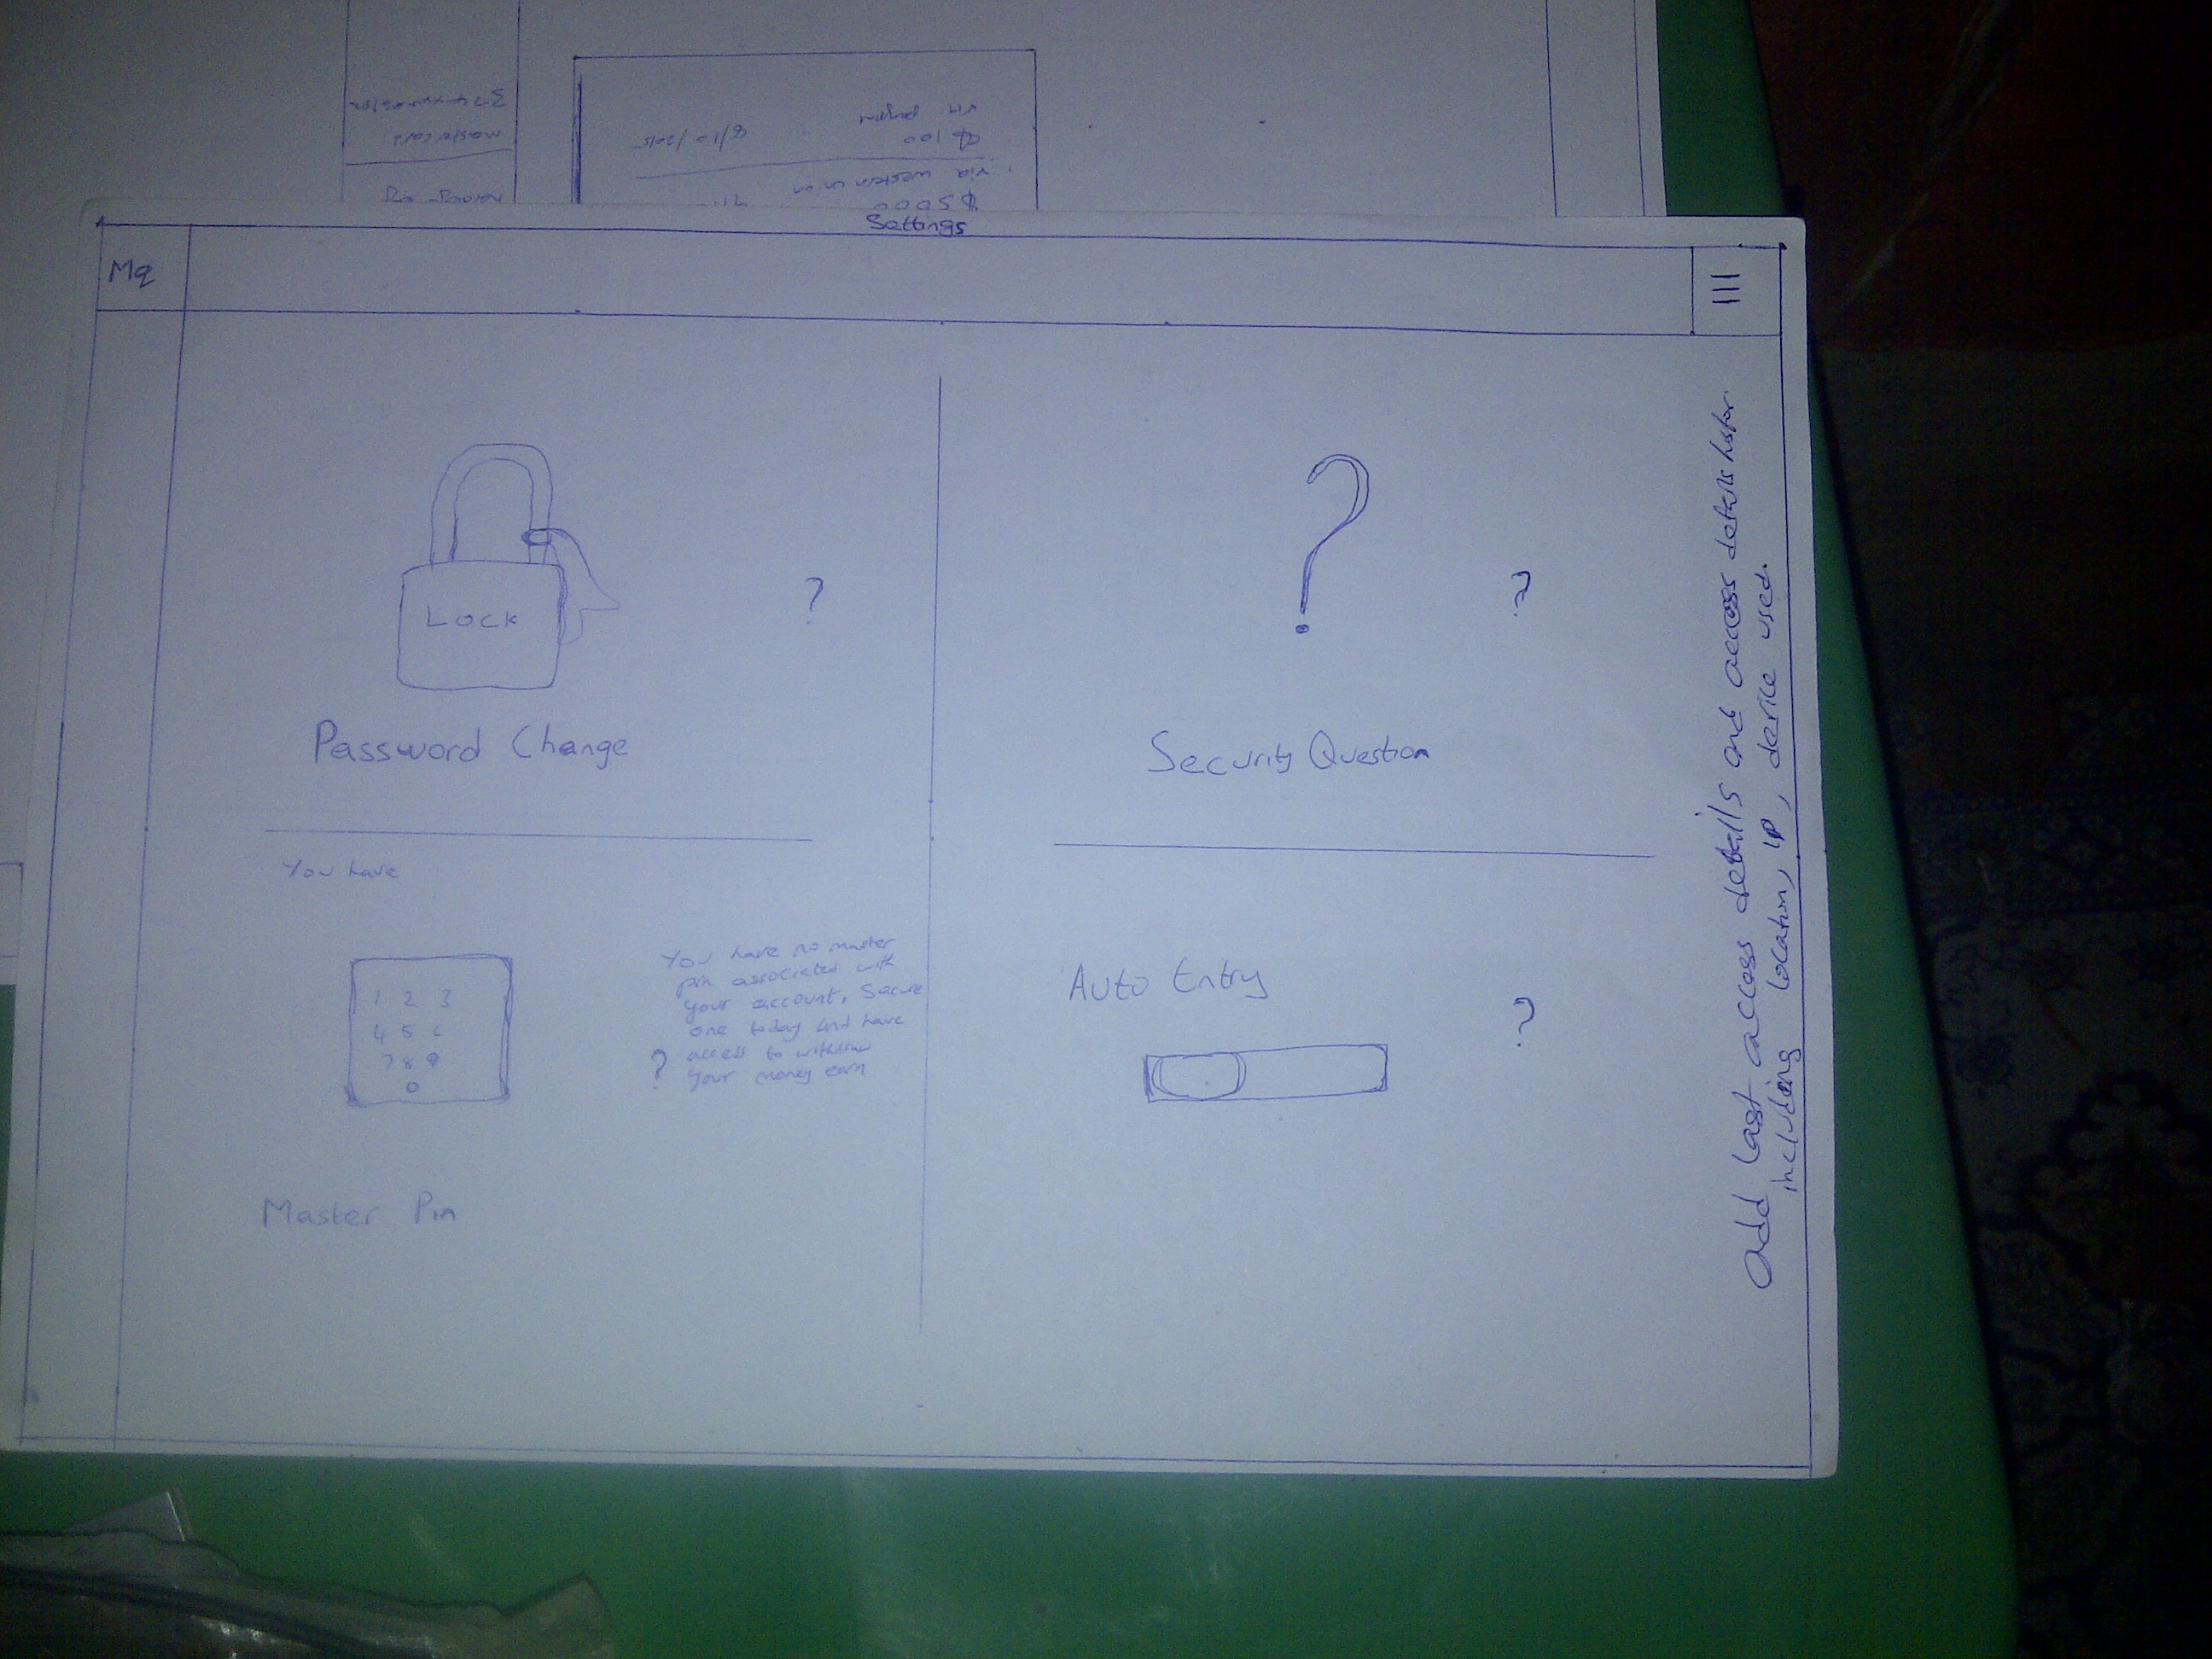 mastercard
via paypal
$100 8/10/2015
via western union
$5000
Settings
Mq
LOCK
?
Password Change
?
?
Security Question
You have
1 2 3
4 5 6
7 8 9
0
You have no master
pin associated with
your account. Secure
one today and have
access to withdraw
your money earn
?
Master Pin
Auto Entry
?
Add last access details and access details
including location, IP, device used.